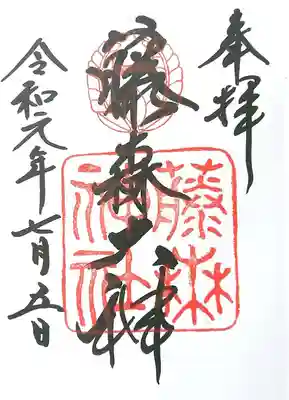 奉拝
藤森大神
藤森神社
令和元年七月五日